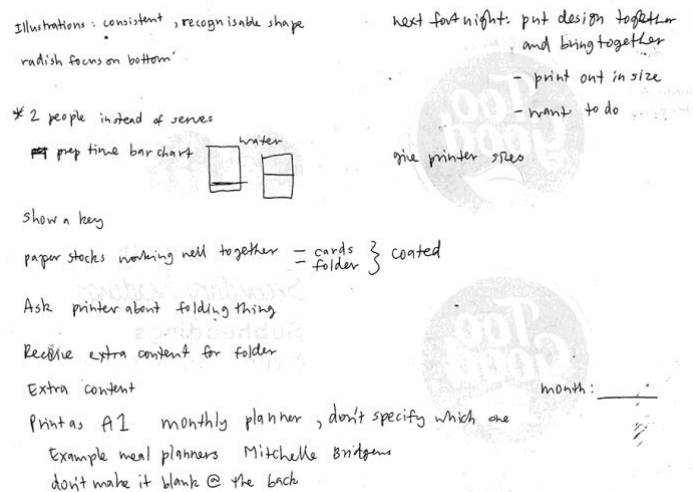 Illustrations : consistent , recognisable shape
radish focus on bottom
* 2 people instead of serves
prep time bar chart
water
show a key
paper stocks working well together = cards
folder } coated
Ask printer about folding thing
Receive extra content for folder
Extra content
Print as A1 monthly planner , don't specify which one
Example meal planners Mitchelle Bridgens
don't make it blank @ the back
next fortnight: put design together
and bring together
- print out in size
- want to do
give printer sizes
month: ______
Too
Good
Subheadings
Too
Good